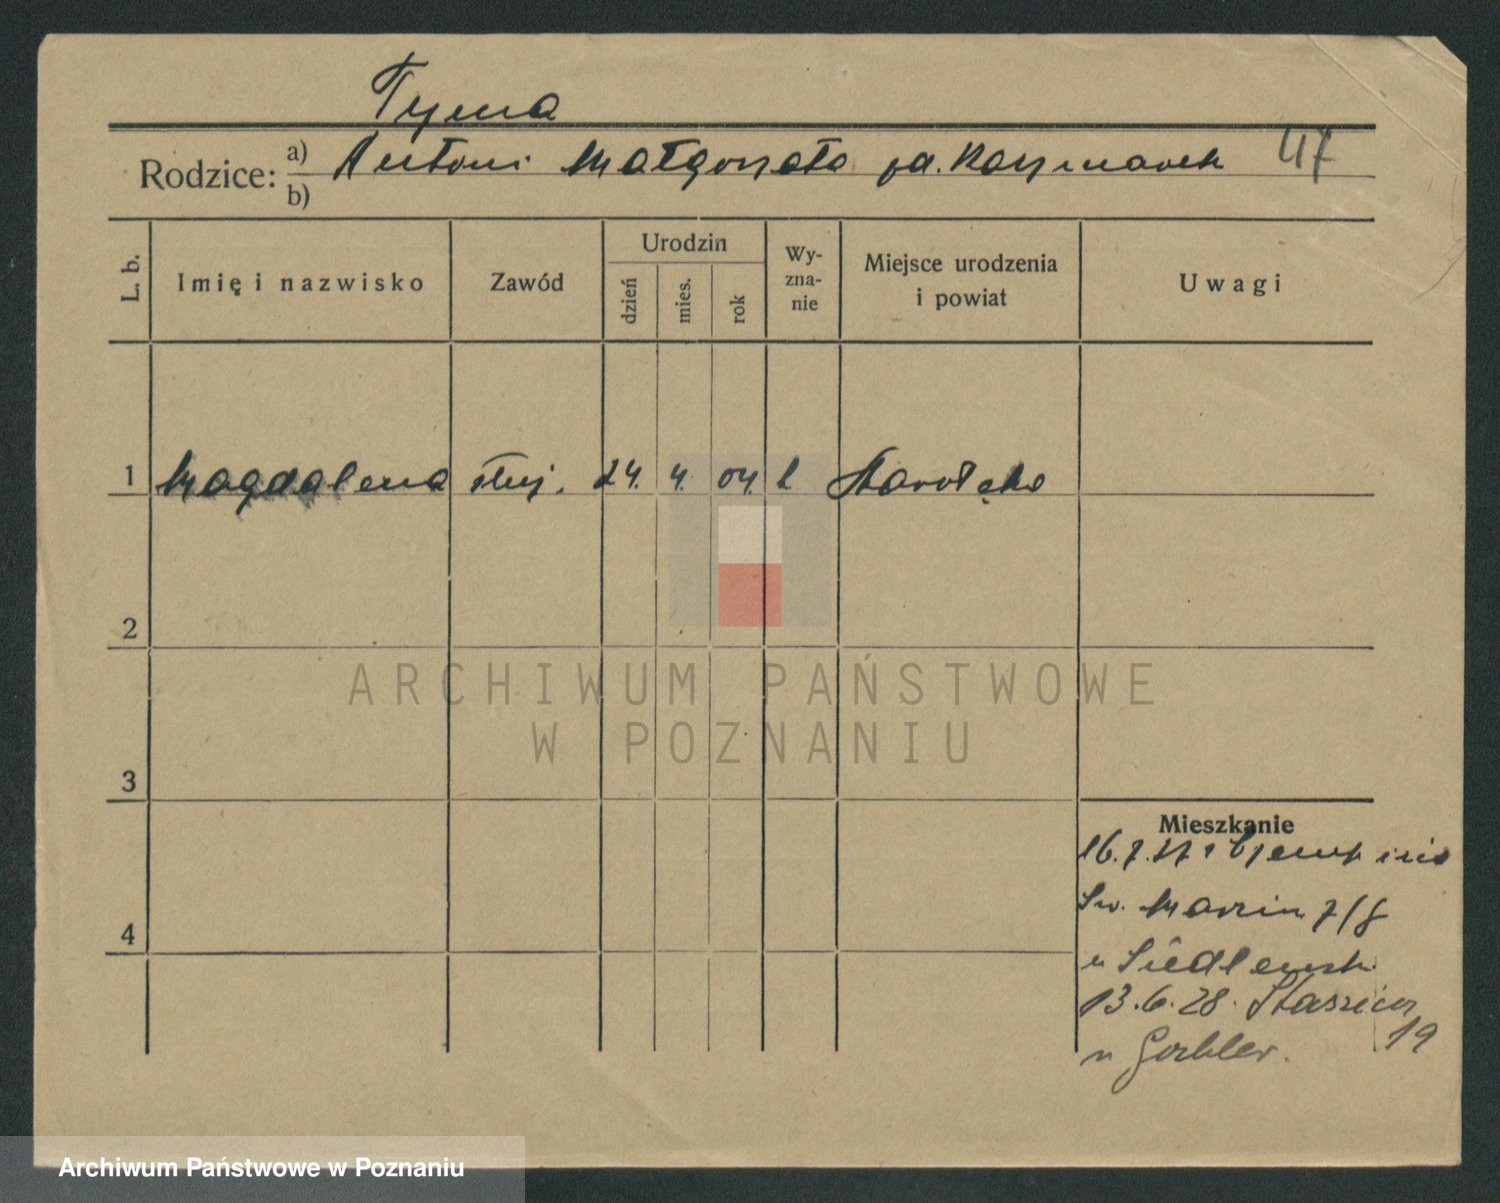 Tyma
Rodzice: a) Antoni Małgorzata
b)
47
L. b.
Imię i nazwisko
Zawód
Urodzin
dzień
mies.
rok
Wy-
zna-
nie
Miejsce urodzenia
i powiat
Uwagi
1 Magdalena służ. 24. 4. 04. Starołęka
2
3
4
Mieszkanie
16.7.27
Św. Marcin 7/8
u
13.6.28. Staszica
19
u
ARCHIWUM PAŃSTWOWE
W POZNANIU
Archiwum Państwowe w Poznaniu